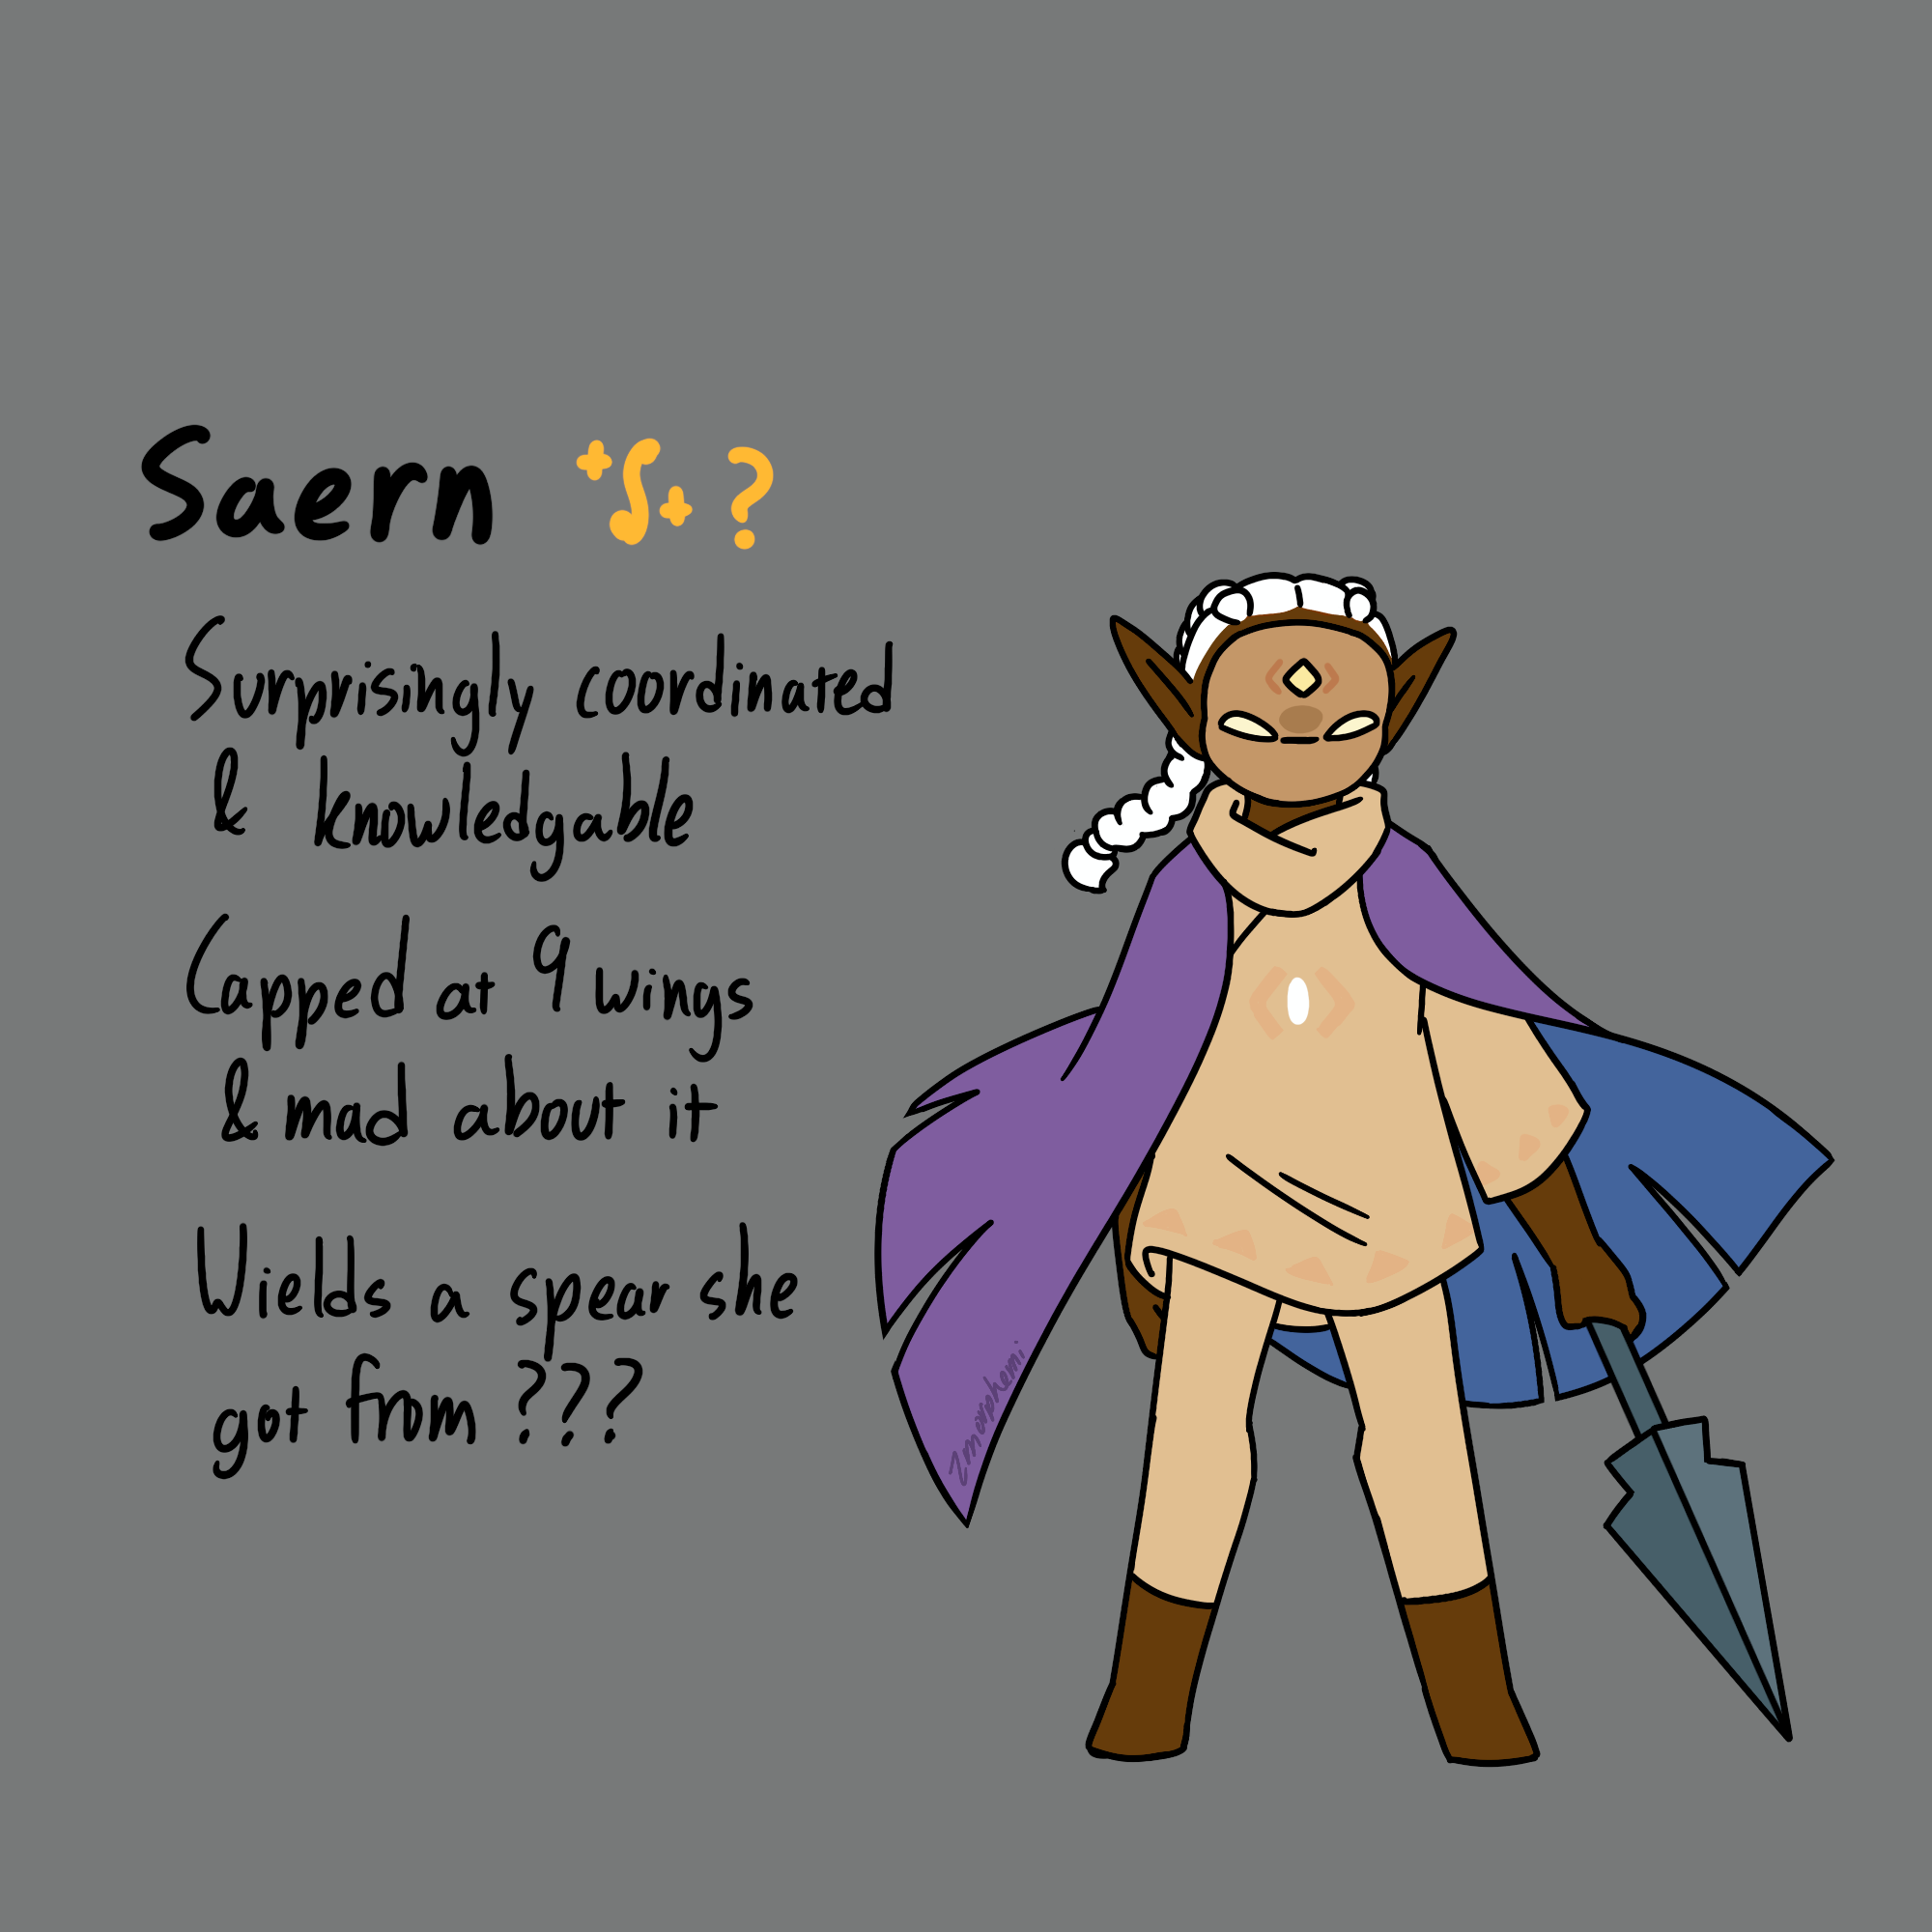 Saern ?
Surprisingly coordinated
& knowledgable
Capped at 9 wings
& mad about it
Wields a spear she
got from ???